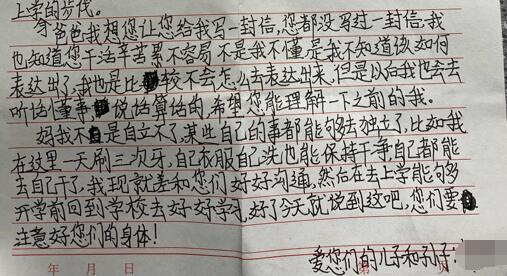 上学的步伐。
爸爸我想您让您给我写一封信,您都没写过一封信,我
也知道您干活辛苦累不容易不是我不懂,是我不知道该如何
表达出了,我也是比较不会怎么去表达出来,但是以后我也会去
听话懂事,说话算话的,希望您能理解一下之前的我。
妈我不是自立不了,某些自己的事都能够去独立了,比如我
在这里一天刷三次牙,自己衣服自己洗也能保持干净自己都能
去自己干了,我现就差和您们好好沟通,然后在去上学能够多
开学前回到学校去好好学习,好了今天就说到这吧,您们要
注意好您们的身体!
爱您们的儿子和孙子:
年 月 日 第 页